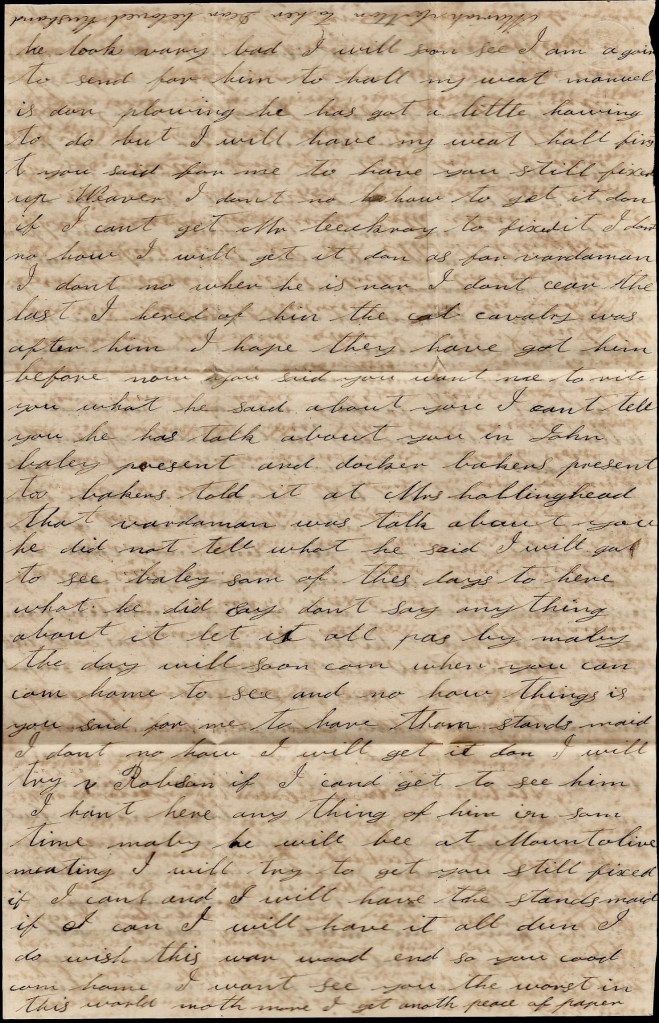 he look vary bad I will son see I am a goin
to send for him to hall my weat manuel
is don plowing he has got a little howing
to do but I will have my weat hall firs
t you said for me to have you still fixed
up Weaver I dont no how to get it don
if I cant get Mr to fixed it I dont
no how I will get it don as for vardaman
I dont no wher he is nor I dont cear the
last I hered of him the cavalry was
after him I hope they have got him
before now you said you want me to rite
you what he said about you I cant tell
you he has talk about you in John
baley present and docker bakers present
too bakers told it at Mrs hollinghead
that vardaman was talk about you
he did not tell what he said I will go
to see baley som of thes days to here
what he did say dont say anything
about it let it all pas by maby
the day will soon com when you can
com home to see and no how things is
you said for me to have them stands maid
I dont no how I will get it don I will
try Robson if I cand get to see him
I hant here any thing of him in som
time maby he will bee at Mountolive
meating I will try to get you still fixed
if I can and I will have the stands maid
if I can I will have it all dun I
do wish this war wood end so you cood
com home I want see you the worst in
this world moth more I get anoth peace of paper
to her Dear beloved Husband